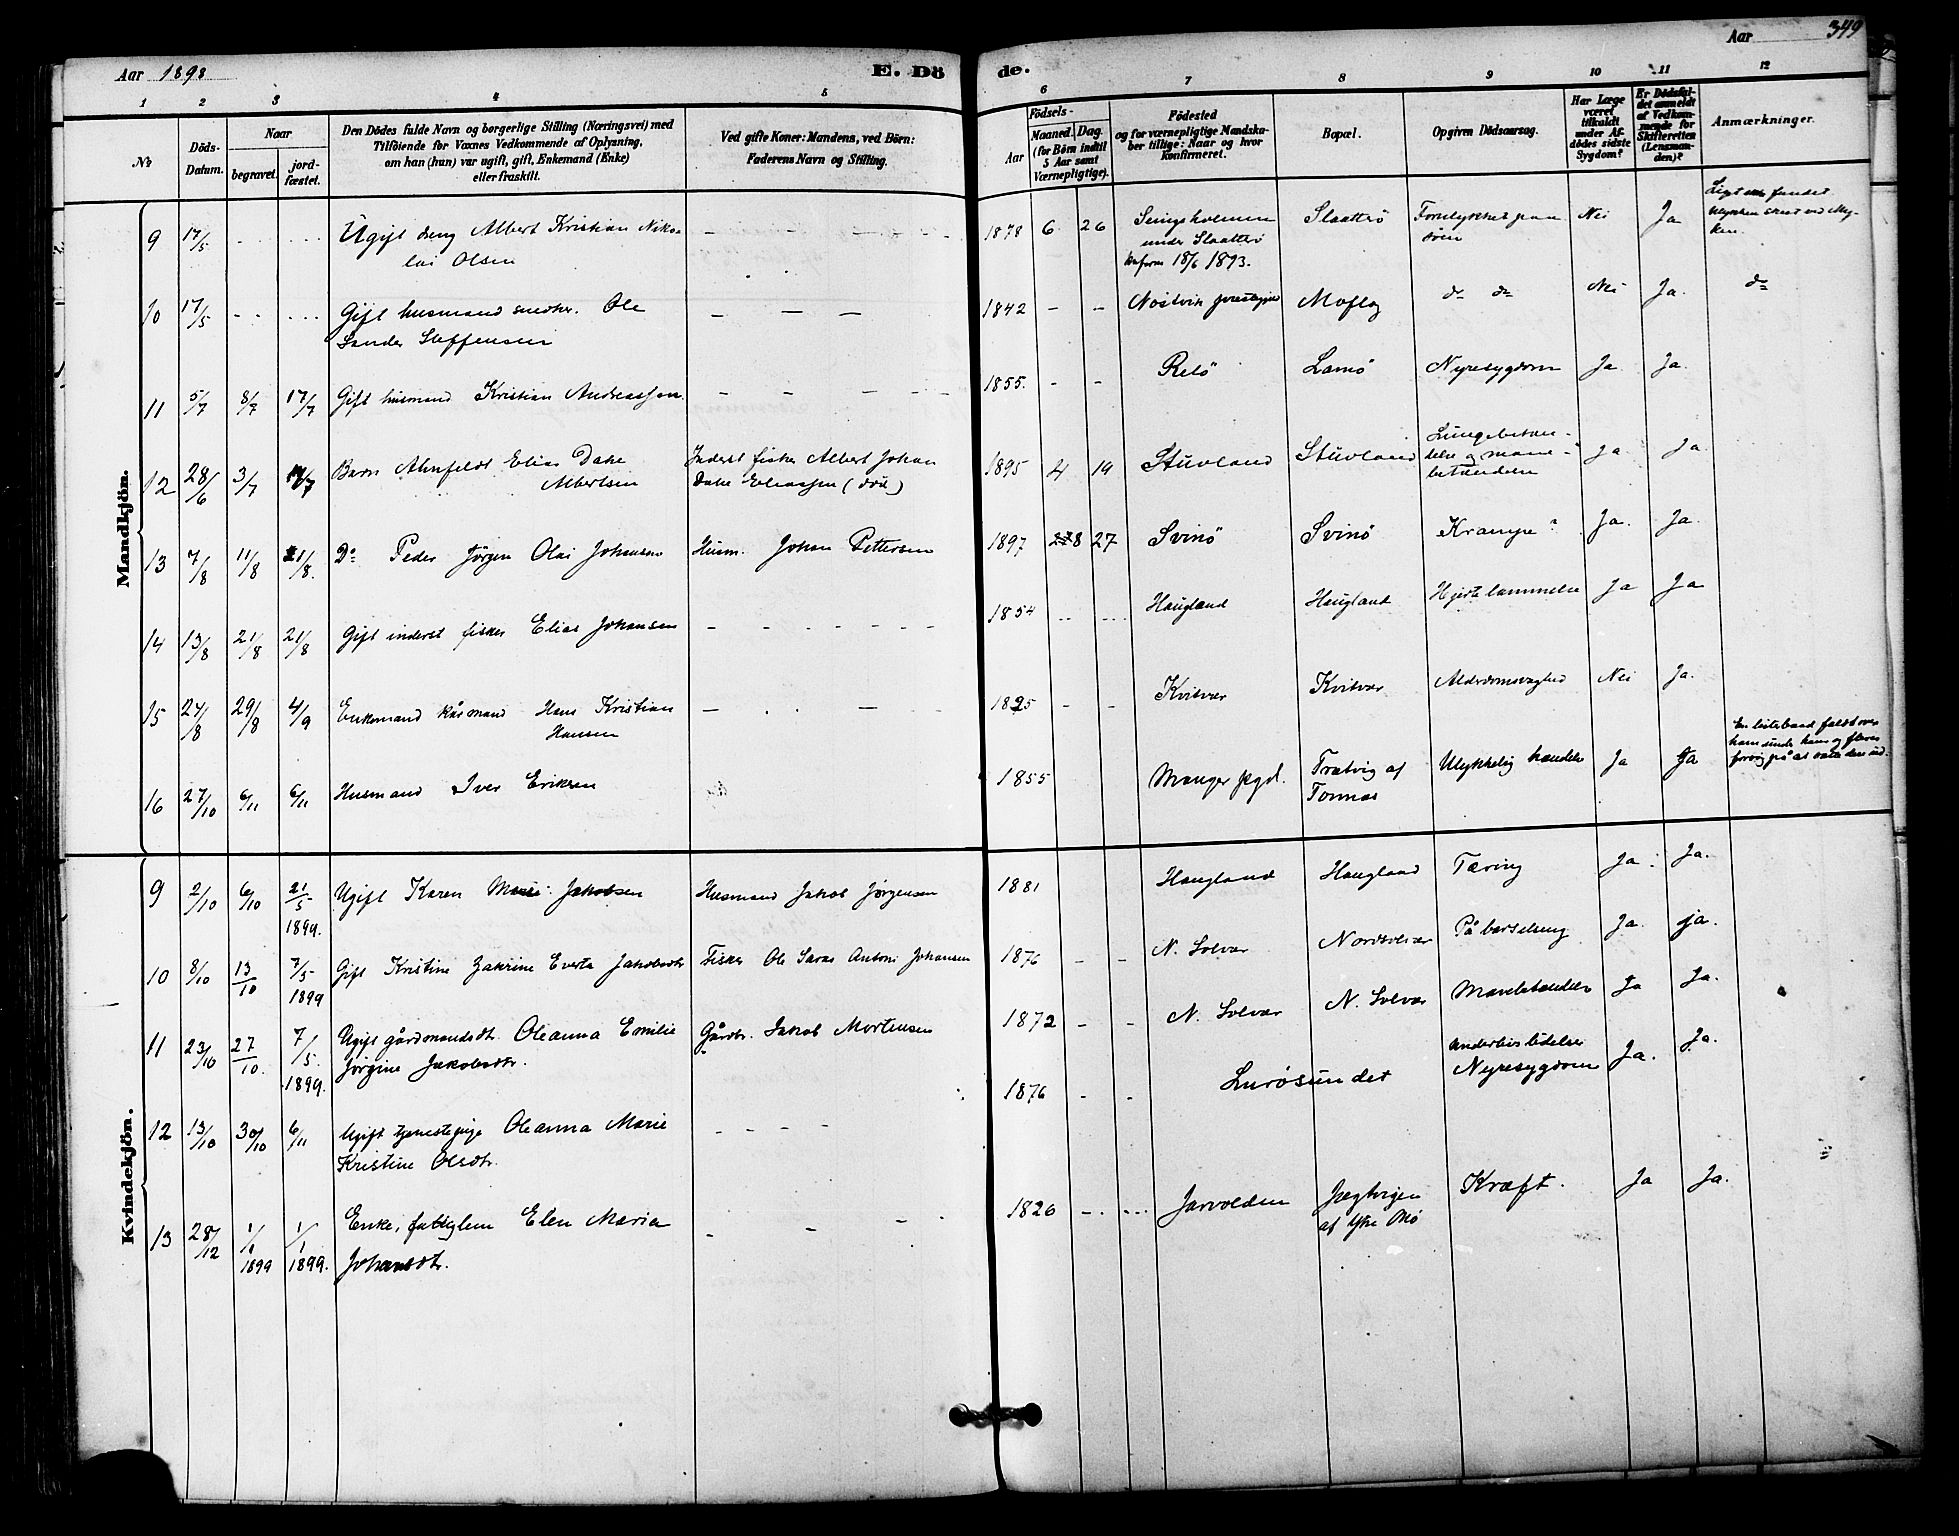 Aar 1898
E. Döde.
Aar 349
1 2 3 4 5 6 7 8 9 10 11 12
No
Döds-Datum.
Naar
begravet.
jordfæstet.
Den Dödes fulde Navn og borgerlige Stilling (Næringsvei) med
Tilföiende for Voxnes Vedkommende af Oplysning,
om han (hun) var ugift, gift, Enkemand (Enke)
eller fraskilt.
Ved gifte Koner: Mandens, ved Börn:
Faderens Navn og Stilling.
Födsels-
Aar
Maaned. Dag.
(for Börn indtil
5 Aar samt
Værnepligtige).
Födested
og for værnepligtige Mandska-
ber tillige: Naar og hvor
konfirmeret.
Bopæl.
Opgiven Dödsaarsag.
Har Læge
været
tilkaldt
under Af-
dödes sidste
Sygdom?
Er Dödsfal-
det anmeldt
af Vedkom-
mende for
Skifteretten
(Lensman-
den)?
Anmærkninger.
Mandkjön.
9 17/5 Ugift dreng Albert Kristian Niko-
lai Olsen
1878 6 26 Seingsholmen
under Slaatterö
konfirm 18/6 1893.
Slaatterö Forulykket paa
söen
Nei Ja
Liget ikke fundet
Ulykken skeet ved My-
ken.
10 17/5 Gift husmand snedker. Ole
Sander Steffensen
1842 - - Nostvik prestegjeld Moflag do do Nei Ja. do
11 5/7 8/7 17/7 Gift husmand Kristian Andreassen 1855. - - Relö Lamö Nyresygdom Ja Ja.
12 28/6 3/7 17/7 Barn Ahnfeldt Elias Dake
Albertsen
Inderst fisker Albert Johan
Dake Eliassen (död)
1895 4 19 Stuvland Stuvland Lungebetæn-
delse og mave-
betændelse
Ja Ja
13 7/8 11/8 21/8. Do Peder Jørgen Olai Johansen Husm. Johan Pettersen 1897 8 27 Svinö Svinö Krampe? Ja. Ja.
14 13/8 21/8 21/8 Gift inderst fisker Elias Johansen 1854 Haugland Haugland Hjertelammelse Ja Ja
15 24/8 29/8 4/9 Enkemand kårmand Hans Kristian
Hansen
1825 - - Kvitvær Kvitvær Alderdomssvaghed Nei Ja.
16 27/10 6/11 6/11 Husmand Iver Eriksen 1855 Manger pgd. Trætvig af
Tonnes
Ulykkelig hændelse Ja Ja
Kvindekjön.
9 2/10 6/10 21/5
1899.
Ugift Karen Marie Jakobsen Husmand Jakob Jørgensen 1881 Haugland Haugland Tæring Ja Ja.
10 8/10 13/10 7/5
1899
Gift Kristine Zakrine Everta Jakobsdtr Fisker Ole Saras Antoni Johansen 1876 - - N. Solvær Nordsolvær På barselseng Ja. ja.
11 23/10 27/10. 7/5.
1899.
Ugift gårdmandsdtr. Oleanna Emilie
Jørgine Jakobsdtr.
Gårdbr. Jakob Mortensen 1872 - - N. Solvær N. Solvær Mavebetændelse Ja Ja.
12 13/10 30/10 6/11 Ugift tjenestepige Oleanna Marie
Kristine Olsdtr.
1876 - - Lurösundet
Underlivslidelser
Nyresygdom Ja. Ja.
13 28/12 1/1
1899
1/1
1899.
Enke, fattiglem Elen Maria
Johansdtr.
1820 Jarvolden Jægtvigen
af Ytre Mö
Kræft. Ja Ja.